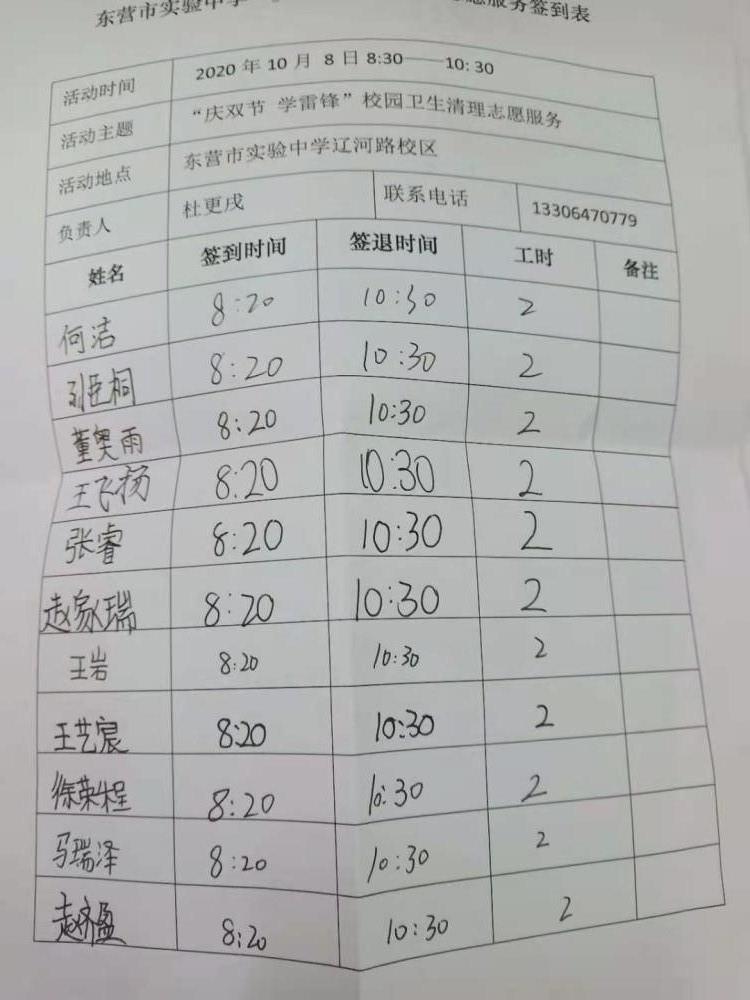 东营市实验中学 服务签到表
活动时间 2020 年 10 月 8 日 8:30——10: 30
活动主题 “庆双节 学雷锋”校园卫生清理志愿服务
活动地点 东营市实验中学辽河路校区
负责人 杜更戌 联系电话 13306470779
姓名 签到时间 签退时间 工时 备注
何洁 8:20 10:30 2
刘臣桐 8:20 10:30 2
董奥雨 8:20 10:30 2
王飞扬 8:20 10:30 2
张睿 8:20 10:30 2
赵家瑞 8:20 10:30 2
王岩 8:20 10:30 2
王艺宸 8:20 10:30 2
徐荣程 8:20 10:30 2
马瑞泽 8:20 10:30 2
赵盈 8:20 10:30 2